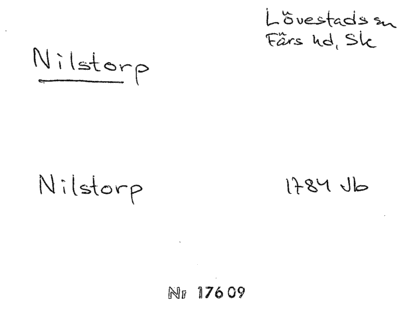 Lövestads sn
Färs hd, Sk
Nilstorp
Nilstorp 1784 Jb
Nr 17609